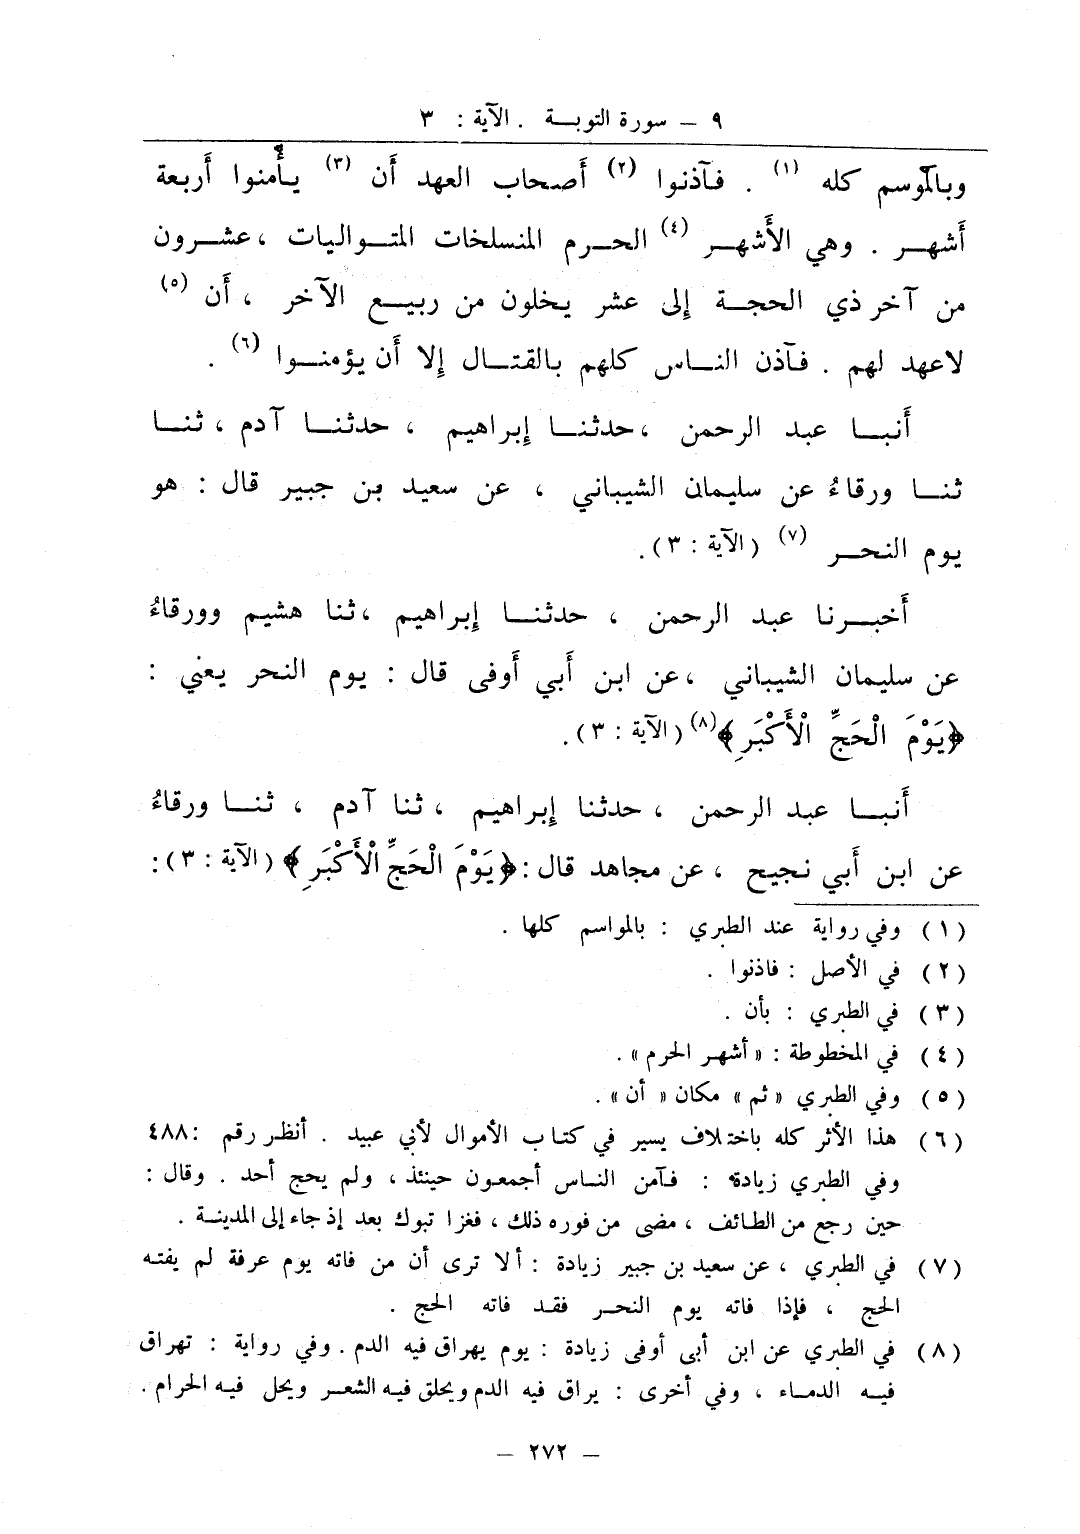 ٩ – سورة التوبة . الآية : ٣
وبالموسم كله (١) . فآذنوا (٢) أصحاب العهد أن (٣) يأمنوا أربعة
أشهر . وهي الأشهر (٤) الحرم المنسلخات المتواليات ، عشرون
من آخر ذي الحجة إلى عشر يخلون من ربيع الآخر ، أن (٥)
لاعهد لهم . فآذن الناس كلهم بالقتال إلا أن يؤمنوا (٦) .
أنبا عبد الرحمن ، حدثنا إبراهيم ، حدثنا آدم ، ثنا
ثنا ورقاءُ عن سليمان الشيباني ، عن سعيد بن جبير قال : هو
يوم النحر (٧) (الآية : ٣).
أخبرنا عبد الرحمن ، حدثنا إبراهيم ، ثنا هشيم وورقاءُ
عن سليمان الشيباني ، عن ابن أبي أوفى قال : يوم النحر يعني :
﴿يَوْمَ الْحَجِّ الْأَكْبَرِ﴾(٨) (الآية : ٣).
أنبا عبد الرحمن ، حدثنا إبراهيم ، ثنا آدم ، ثنا ورقاءُ
عن ابن أبي نجيح ، عن مجاهد قال : ﴿يَوْمَ الْحَجِّ الْأَكْبَرِ﴾ (الآية : ٣):
(١) وفي رواية عند الطبري : بالمواسم كلها .
(٢) في الأصل : فاذنوا .
(٣) في الطبري : بأن .
(٤) في المخطوطة : «أشهر الحرم» .
(٥) وفي الطبري «ثم» مكان «أن» .
(٦) هذا الأثر كله باختلاف يسير في كتاب الأموال لأبي عبيد . أنظر رقم :٤٨٨
وفي الطبري زيادة : فآمن الناس أجمعون حينئذ ، ولم يحج أحد . وقال :
حين رجع من الطائف ، مضى من فوره ذلك ، فغزا تبوك بعد إذ جاء إلى المدينة .
(٧) في الطبري ، عن سعيد بن جبير زيادة : ألا ترى أن من فاته يوم عرفة لم يفته
الحج ، فإذا فاته يوم النحر فقد فاته الحج .
(٨) في الطبري عن ابن أبى أوفى زيادة : يوم يهراق فيه الدم . وفي رواية : تهراق
فيه الدماء ، وفي أخرى : يراق فيه الدم ويحلق فيه الشعر ويحل فيه الحرام .
– ٢٧٢ –